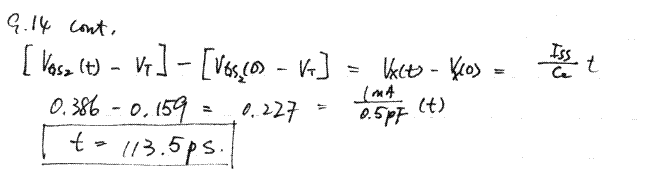 9.14 cont.
[V_GS2(t) - V_T] - [V_GS2(0) - V_T] = V_X(t) - V_X(0) = I_SS/C_e t
0.386 - 0.159 = 0.227 = 1mA/0.5pF (t)
t = 113.5ps.